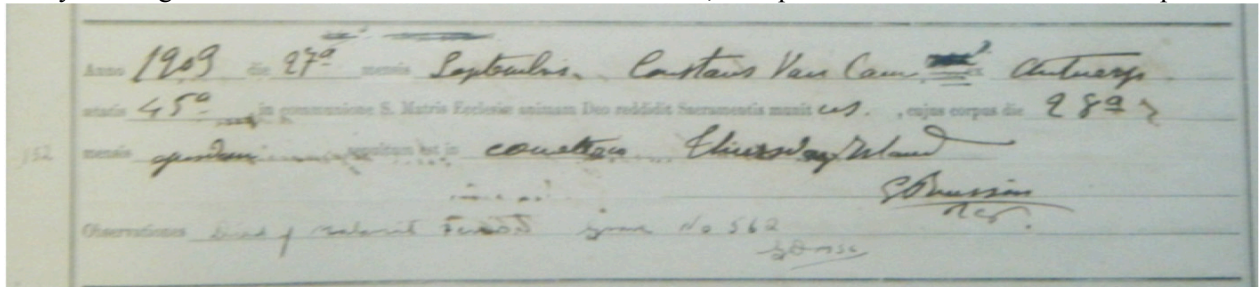 Anno 1909 die 27a mensis Septembris. Constans Van Cam ex Antwerp
ætatis 45o in communione S. Matris Ecclesiæ animam Deo reddidit Sacramentis munitus. , cujus corpus die 28a
152 mensis ejusdem sepultum est in Thursday Island
Observationes Died of Malarial Fever Grave No 562